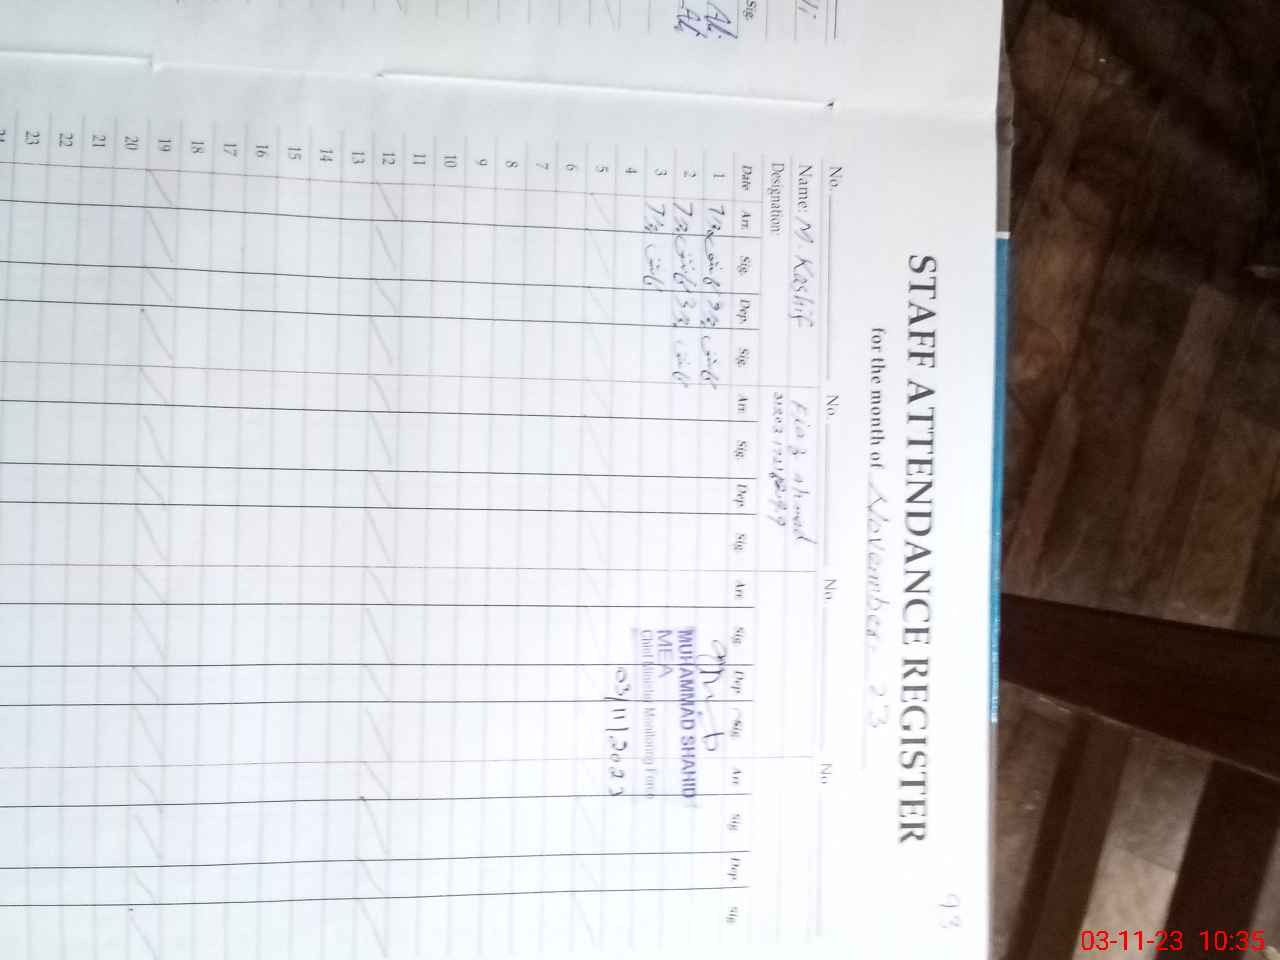 93
STAFF ATTENDANCE REGISTER
for the month of November 23
No. No. No. No
Name: M. Kashif Fiaz Ahmad
Designation:
Date Arr. Sig. Dep. Sig. Arr. Sig. Dep. Sig. Arr. Sig. Dep. Sig. Arr. Sig. Dep. Sig.
1 كاشف كاشف
2 كاشف كاشف
3 كاشف
MUHAMMAD SHAHID
MEA
Chief Minister Monitoring Force
03/11/2023
4
5
6
7
8
9
10
11
12
13
14
15
16
17
18
19
20
21
22
23
Sig.
Ali
Ali
03-11-23 10:35